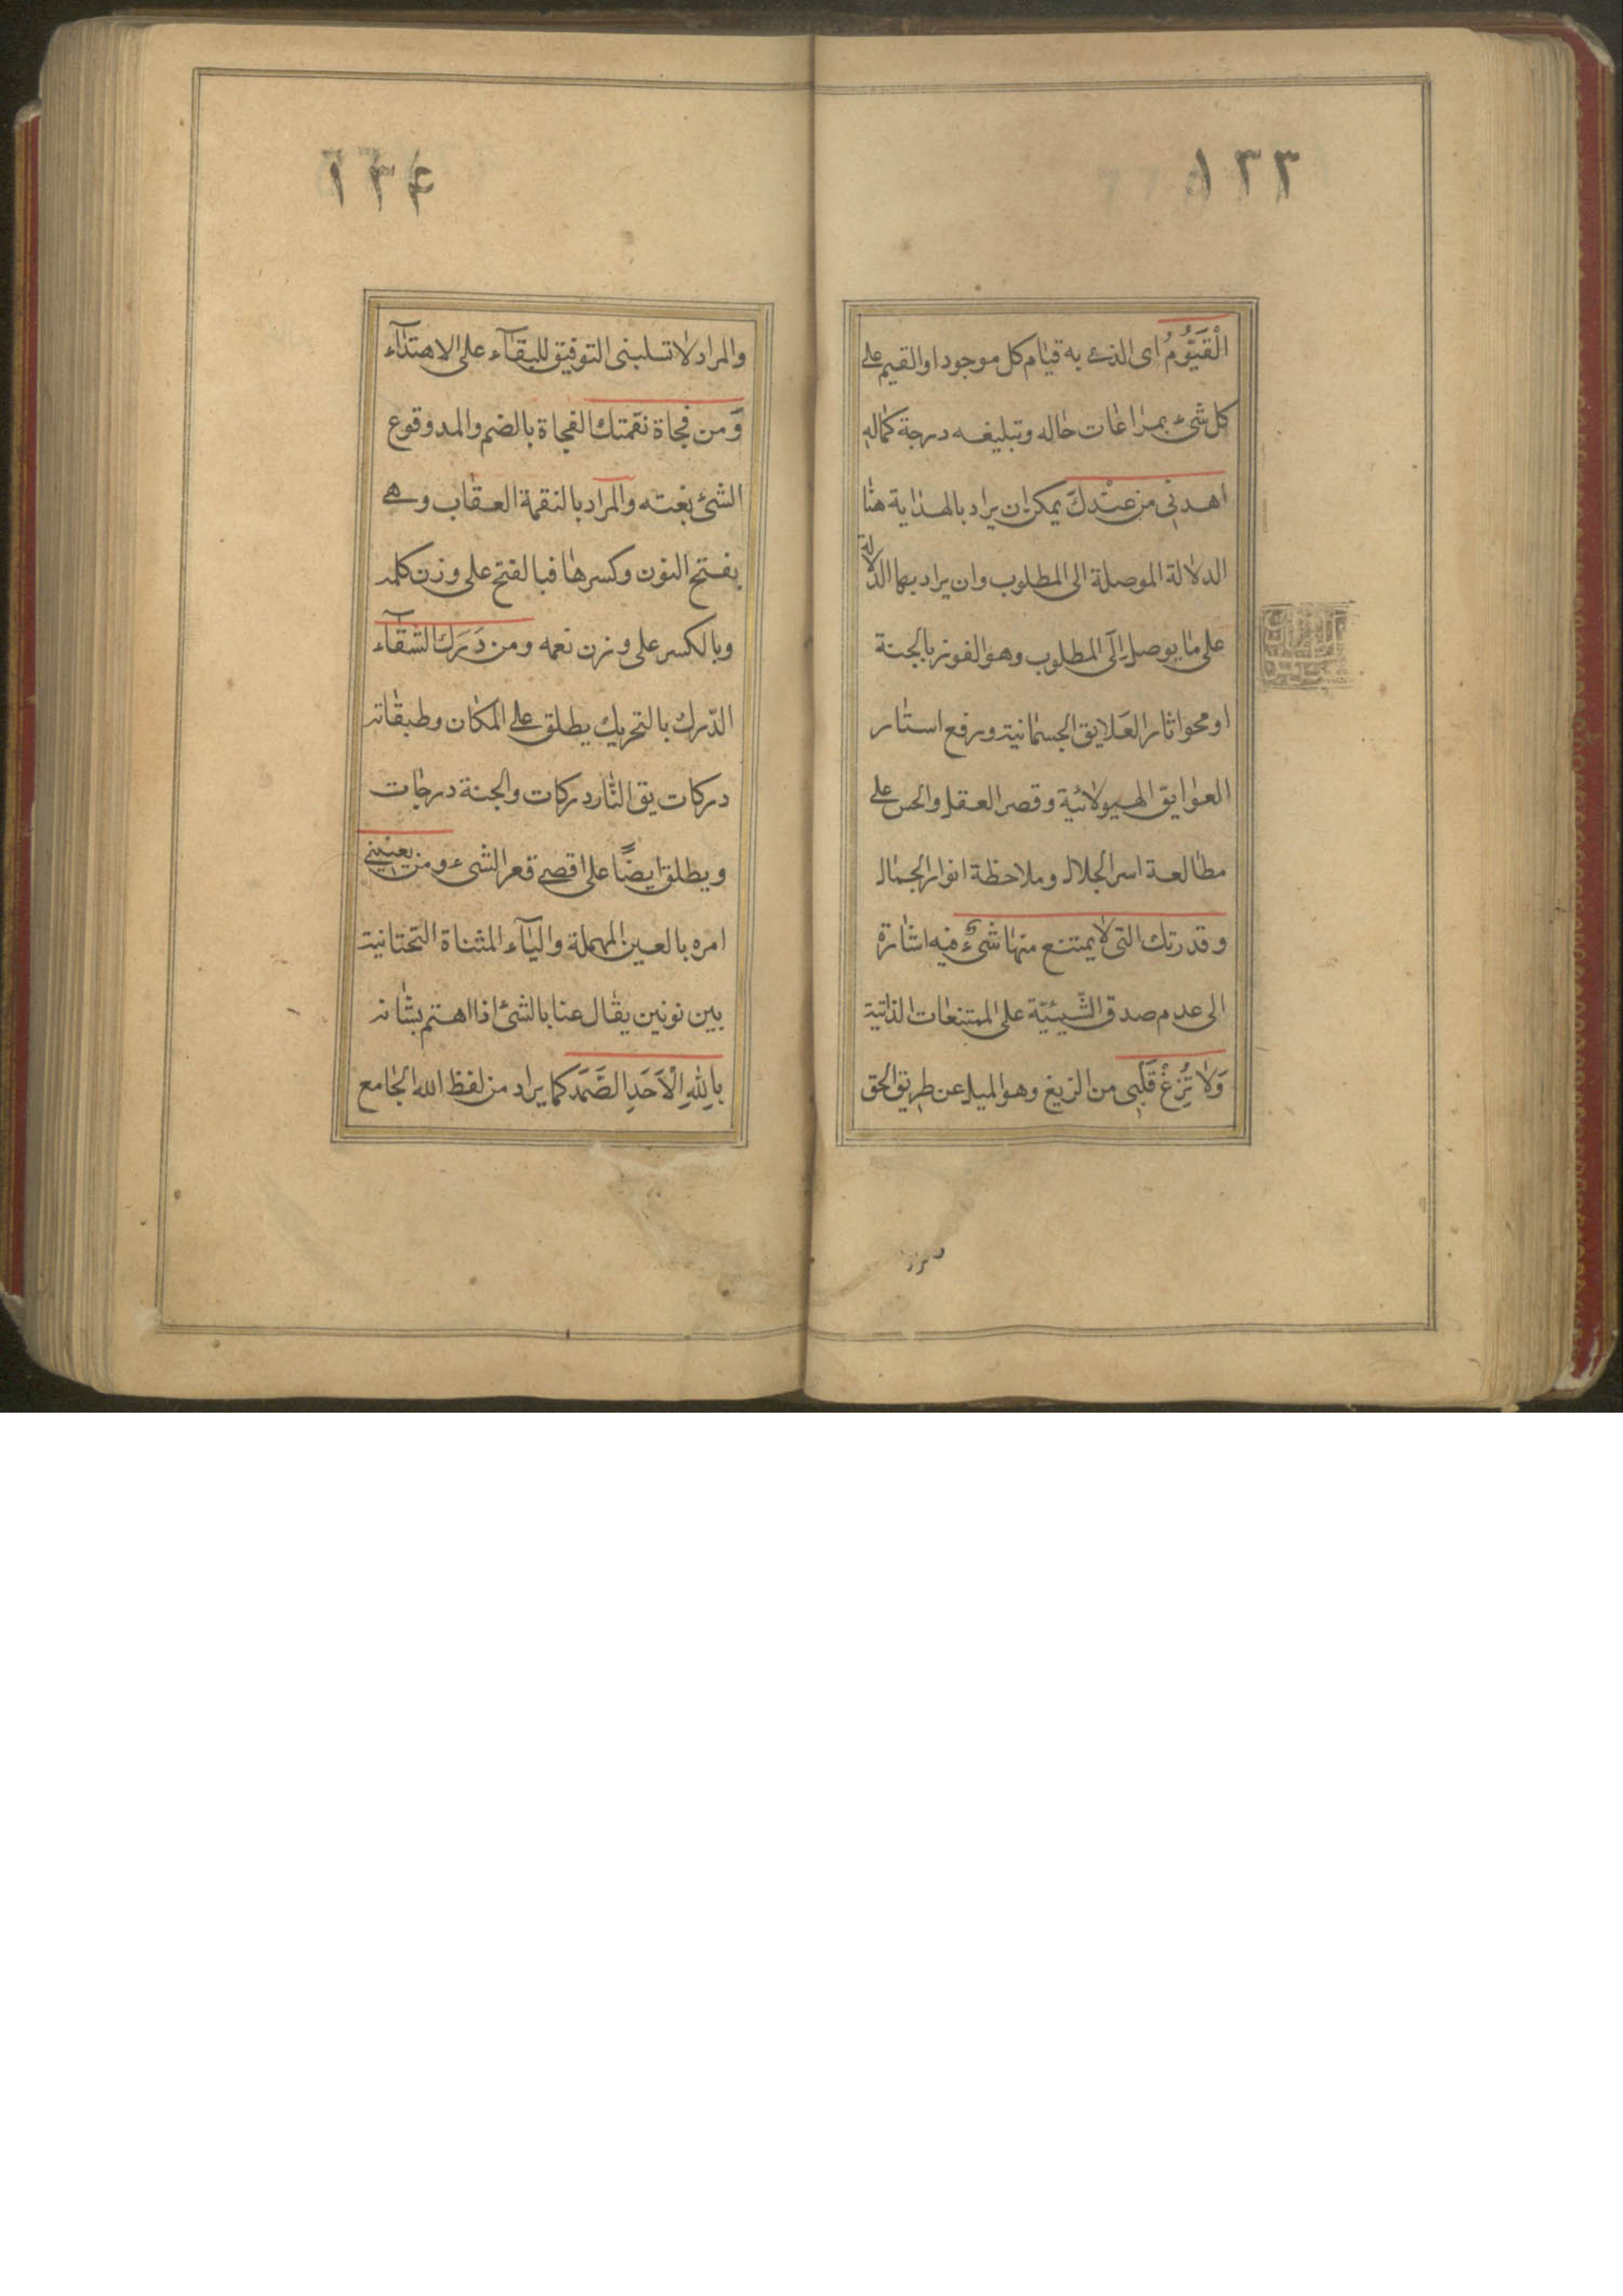 ١٣٣
الْقَيُّومُ اى الذى به قيام كل موجود او القيم على
كل شئ بمراعات حاله وتبليغه درجة كماله
اهدنى من عندك يمكن ان يراد بالهداية هنا
الدلالة الموصلة الى المطلوب وان يراد بها الدلالة
على ما يوصل الى المطلوب وهو الفوز بالجنة
او محو اثار العلايق الجسمانية ورفع استار
العوايق الهيولائية وقصر العقل والحس على
مطالعة اسر الجلال وملاحظة انوار الجمال
وقدرتك التى لا يمتنع منها شئ فيه اشارة
الى عدم صدق الشّيئيّة على الممتنعات الذاتية
وَلا تُزِغْ قَلْبِى من الزيغ وهو الميل عن طريق الحق
١٣٤
والمراد لا تسلبنى التوفيق للبقآء على الاهتدآء
وَمن فجاة نقمتك الفجاة بالضم والمد وقوع
الشئ بغته والمراد بالنقمة العقاب وهى
بفتح النون وكسرها فبالفتح على وزن كلمه
وبالكسر على وزن نعمه ومن دَرَك الشقآء
الدّرك بالتحريك يطلق على المكان وطبقاته
دركات يق النار دركات والجنة درجات
ويطلق ايضًا على اقصى قعر الشىء ومن يعنينى
امره بالعين المهملة واليآء المثناة التحتانية
بين نونين يقال عنا بالشئ اذا اهتم بشانه
بِاللهِ الْاَحَدِ الصَّمَد كما يراد من لفظ الله الجامع